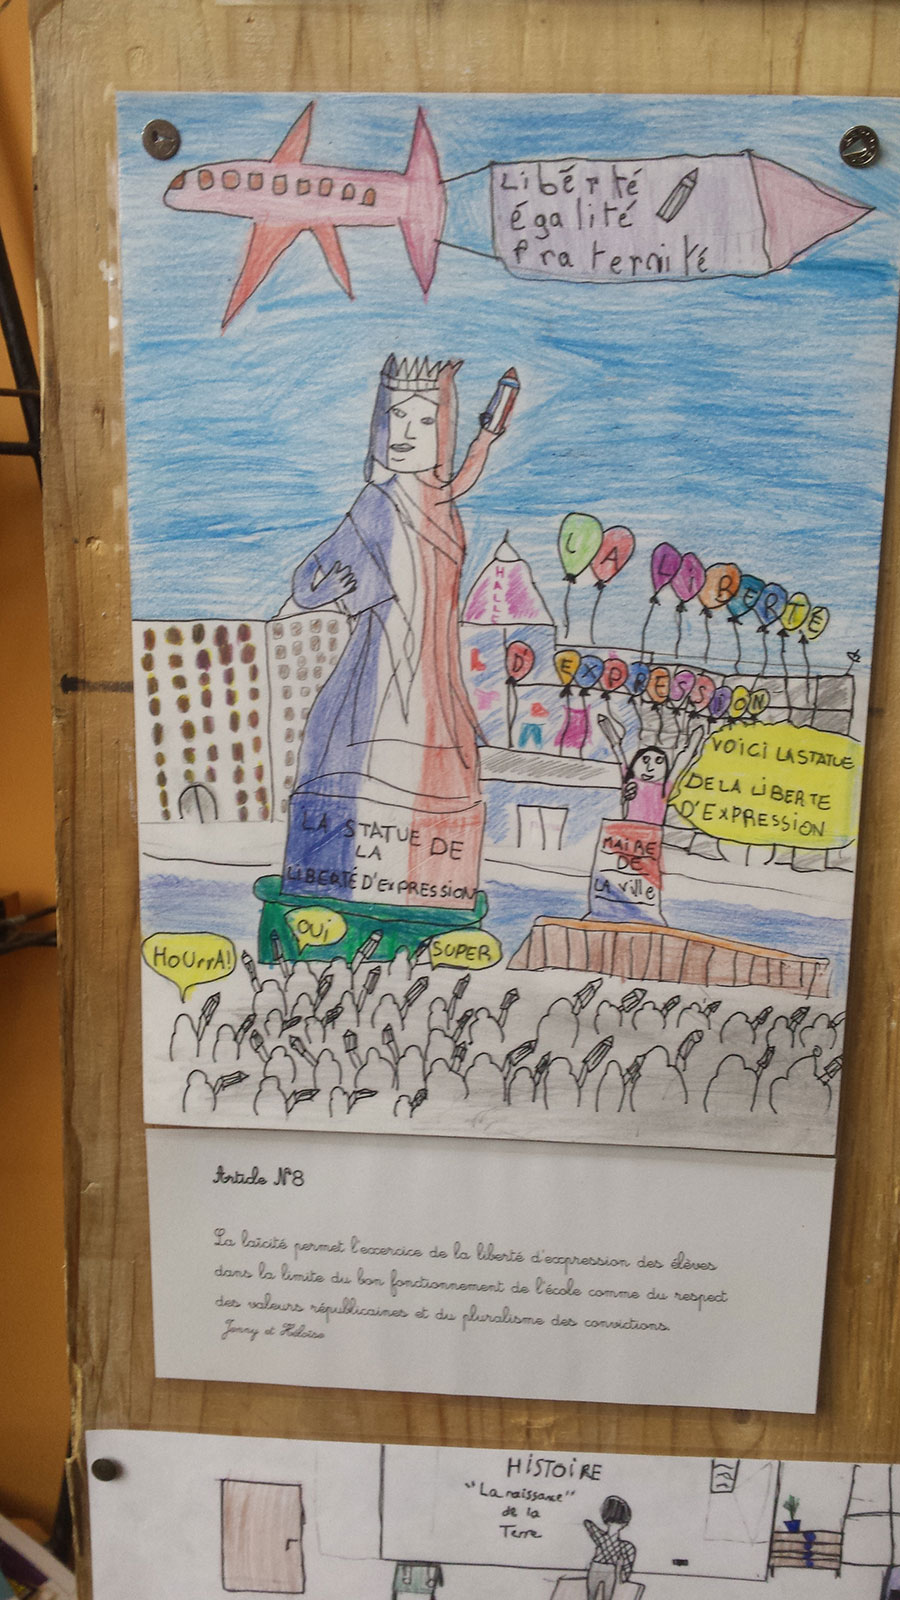 Liberté
égalité
Fraternité
HALLE
LA LIBERTÉ
D'EXPRESSION
VOICI LA STATUE
DE LA LIBERTE
D'EXPRESSION
LA STATUE DE
LA
LIBERTÉ D'EXPRESSION
MAIRE
DE
LA Ville
HOUrrA!
OUi
SUPER
Article N°8
La laïcité permet l'exercice de la liberté d'expression des élèves
dans la limite du bon fonctionnement de l'école comme du respect
des valeurs républicaines et du pluralisme des convictions.
Jenny et Héloïse
HISTOIRE
"La naissance"
de la
Terre